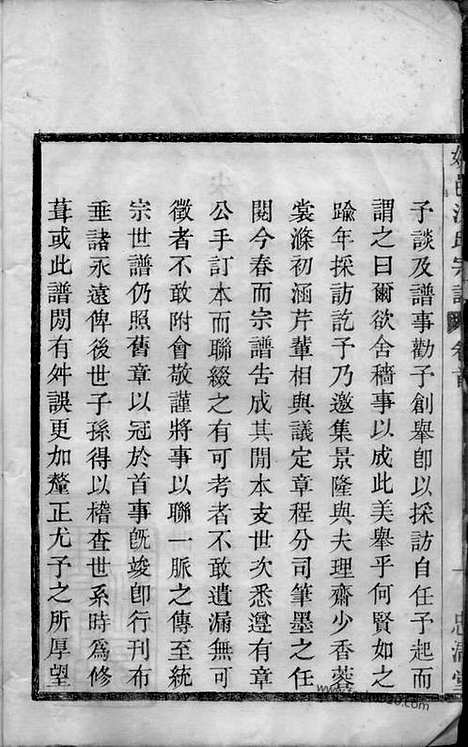 子談及譜事勸子創舉卽以採訪自任予起而
謂之曰爾欲舍穡事以成此美舉乎何賢如之
踰年採訪訖予乃邀集景隆與夫理齋少香蓉
裳滌初涵芹輩相與議定章程分司筆墨之任
閱今春而宗譜告成其閒本支世次悉遵有章
公手訂本而聯綴之有可考者不敢遺漏無可
徵者不敢附會敬謹將事以聯一脈之傳至統
宗世譜仍照舊章以冠於首事旣竣卽行刊布
垂諸永遠俾後世子孫得以稽查世系時爲修
葺或此譜閒有舛誤更加釐正尤予之所厚望